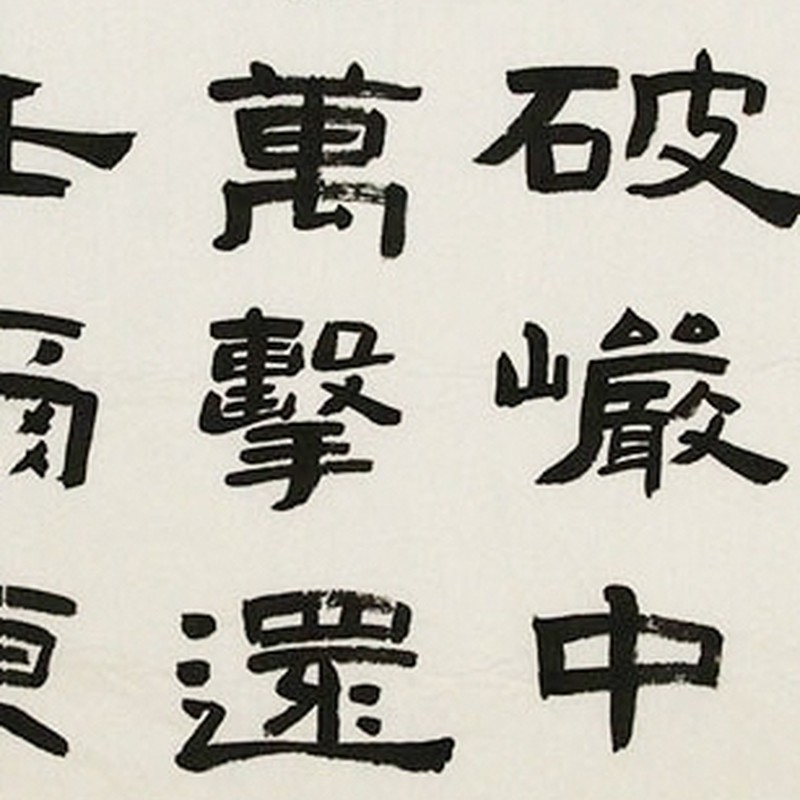 破巗中
萬擊還